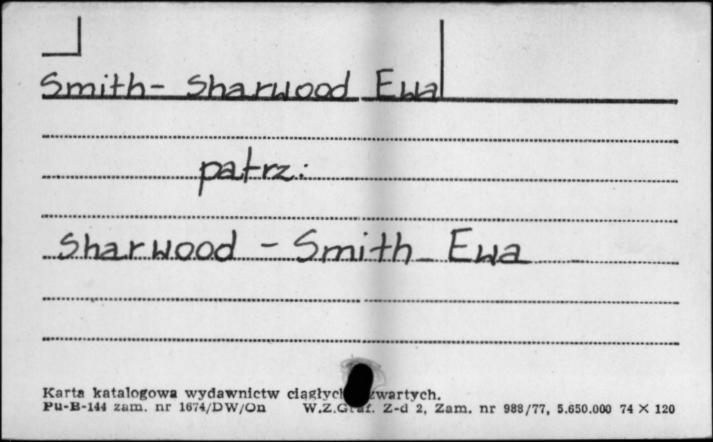 Smith- Sharwood Ewa
patrz:
Sharwood - Smith Ewa
Karta katalogowa wydawnictw ciągłych zwartych.
Pu-B-144 zam. nr 1674/DW/On W.Z.Graf. Z-d 2, Zam. nr 988/77, 5.650.000 74 X 120